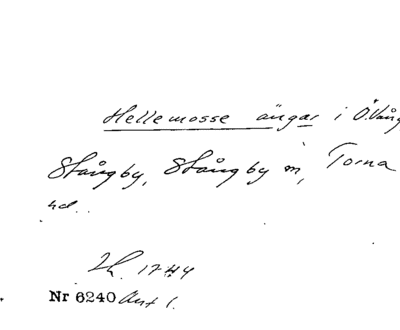 Hellemosse ängar i Ö.Vång
Stångby, Stångby m, Torna
hd.
Lh. 1744
Nr 6240 Akt 1.